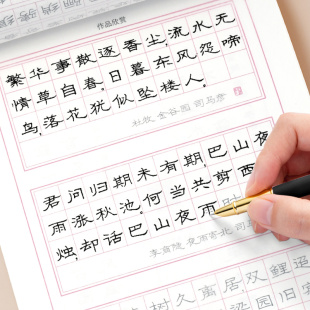 作品欣赏
繁华事散逐香尘,流水无
情草自春。日暮东风怨啼
鸟,落花犹似坠楼人。
杜牧 金谷园 司马彦
君问归期未有期,巴山夜
雨涨秋池。何当共剪西
烛,却话巴山夜雨时
李商隐 夜雨寄北 司
树久离居双鲤迢
梁园旧宾